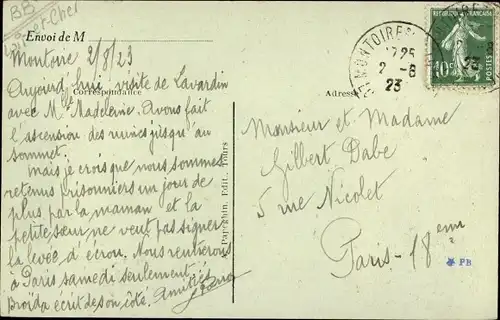 BB
Loir-et-Cher
Envoi de M
Montoire 2/8/23
Aujourd'hui, visite de Lavardin
Correspondance
avec Mlle Madeleine. Avons fait
l'ascension des ruines jusqu'au
sommet.
mais je crois que nous sommes
retenus prisonniers un jour de
plus par la maman et la
petite sœur ne veut pas signer
la levée d'écrou. Nous rentrerons
à Paris samedi seulement.
Broïda écrit de son côté. Amitiés
Papeghin, Edit., Tours
Adresse
MONTOIRE
17 25
2 - 8
23
REPUBLIQUE FRANÇAISE
10c
POSTES
Monsieur et Madame
Gilbert Dabe
5 rue Nicolet
Paris - 18 eme
PB